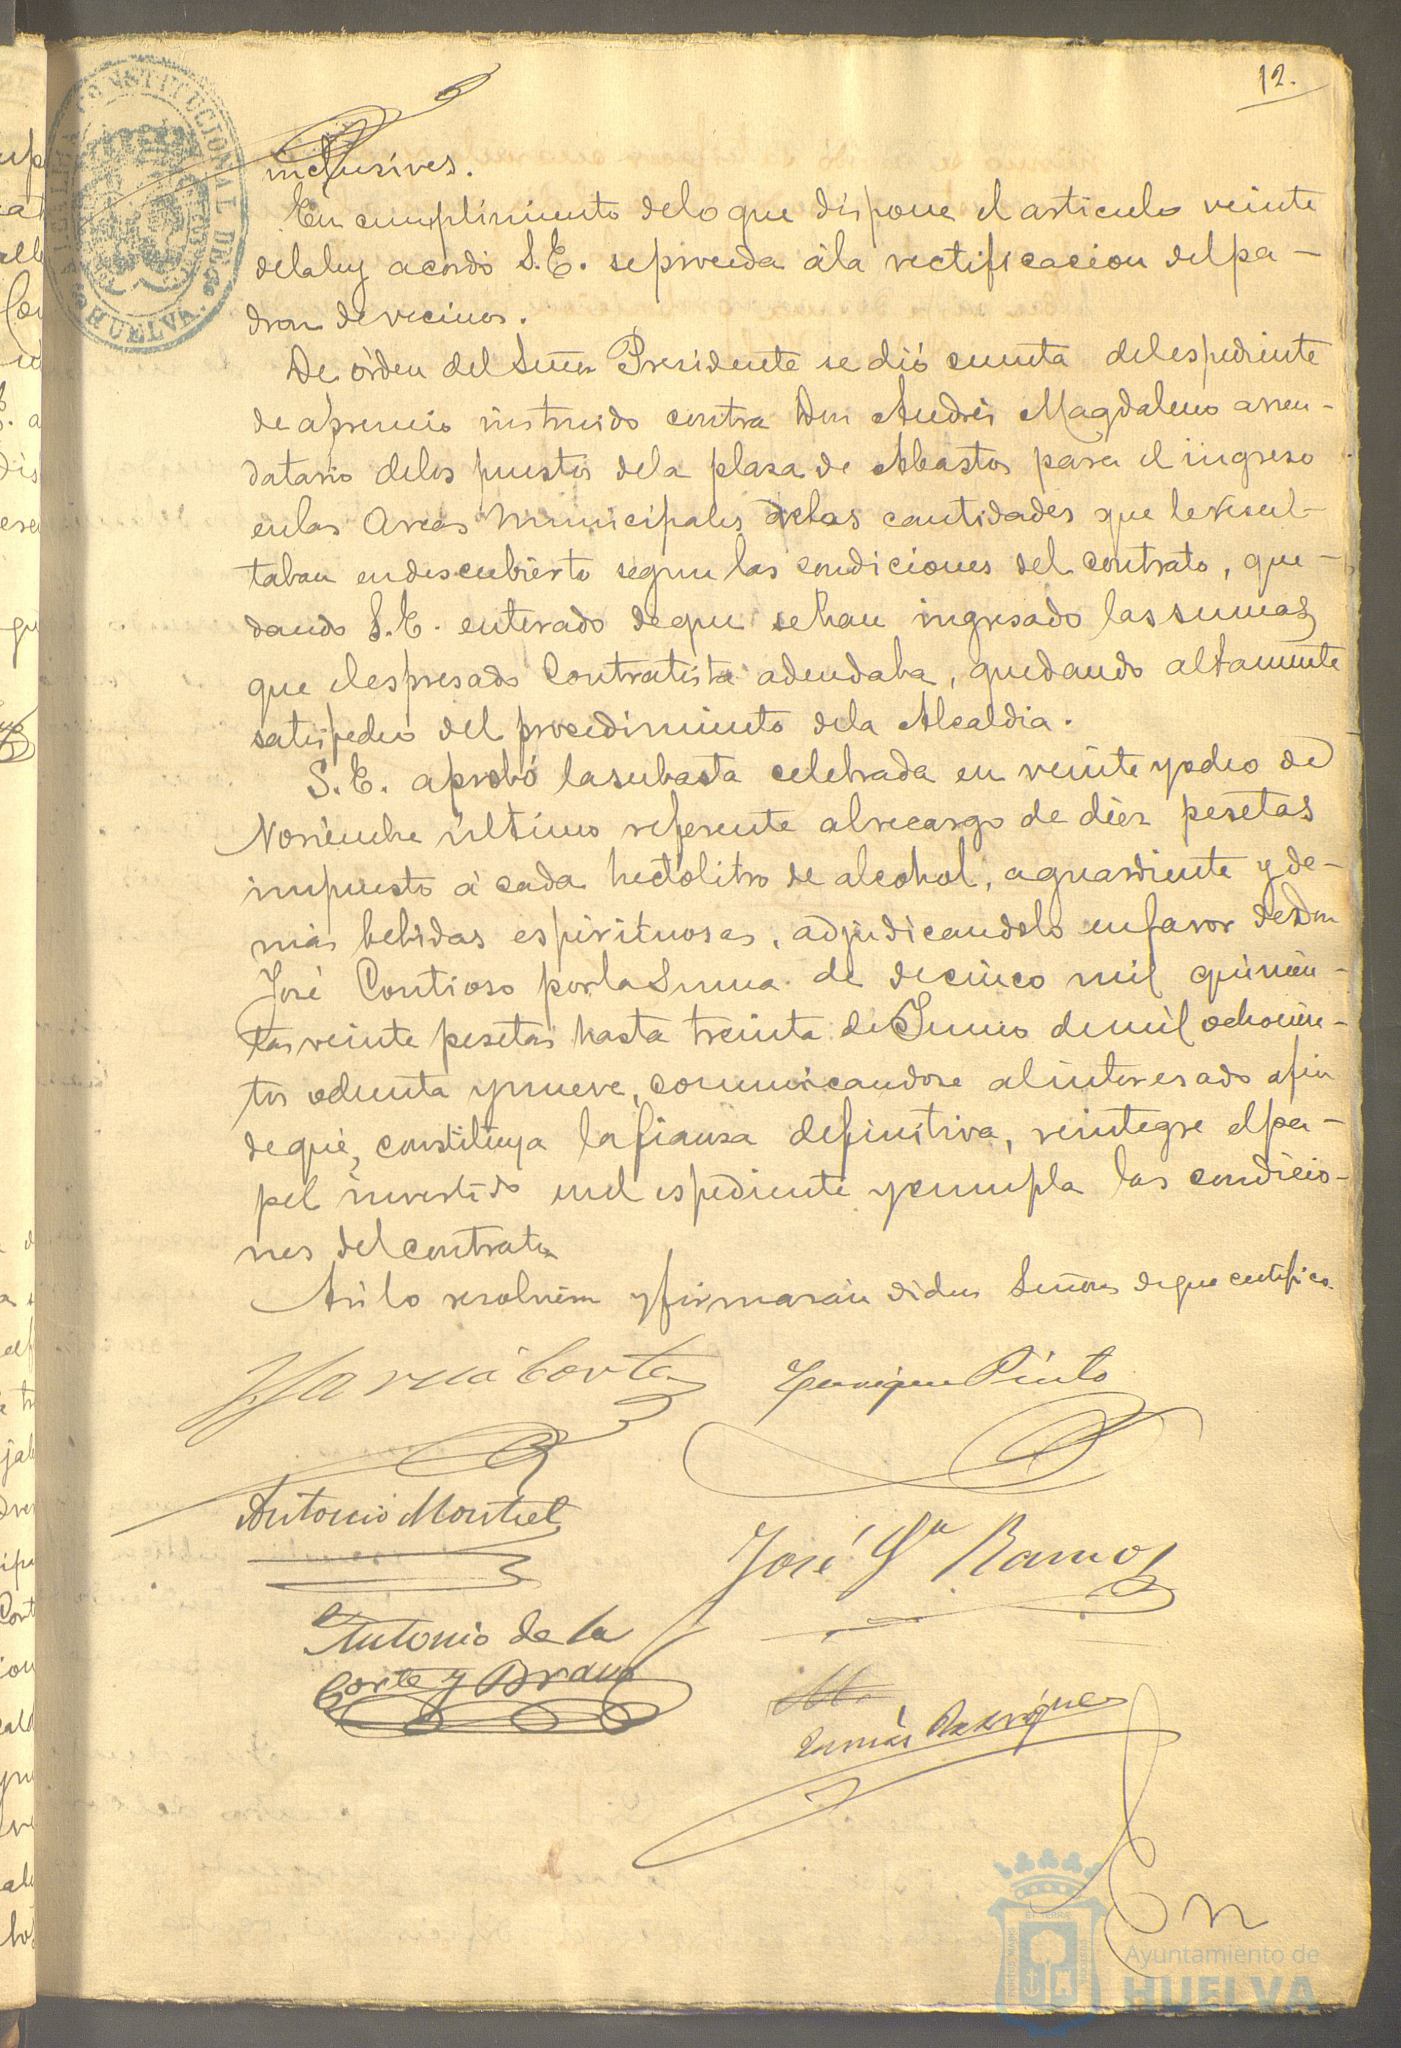 12.
ALCALDIA CONSTITUCIONAL DE HUELVA
inclusives.
En cumplimiento delo que dispone el articulo veinte
delaley acordó S.E. seproceda ála rectificacion del pa-
dron de vecinos.
De órden del Señor Presidente se dió cuenta del espediente
de apremio instruido contra Don Andrés Magdaleno arren-
datario delos puestos dela plaza de Abastos para el ingreso
enlas Arcas Municipales delas cantidades que le resul-
taban en descubierto segun las condiciones del contrato, que-
dando S.E. enterado deque sehan ingresado las sumas
que el espresado Contratista adeudaba, quedando altamente
satisfecho del procedimiento dela Alcaldia.
S.E. aprobó lasubasta celebrada en veinte yocho de
Noviembre último referente al recargo de diez pesetas
impuesto á cada hectolitro de alcohol, aguardiente y de-
más bebidas espirituosas, adjudicandolo enfavor de Don
José Contioso por la Suma de cinco mil quinien-
tas veinte pesetas hasta treinta de Junio demil ochocien-
tos ochenta y nueve, comunicandose al interesado afin
deque, constituya lafianza definitiva, reintegre elpa-
pel invertido enel espediente y cumpla las condicio-
nes del contrato
Asi lo resolvieron y firmarán dichos Señores deque certifico.
García Corte
Enrique Pinto
Antonio Montiel
José Gª Ramos
Antonio de la
Corte y Bravo
Tomás Rodríguez
En
Ayuntamiento de
HUELVA